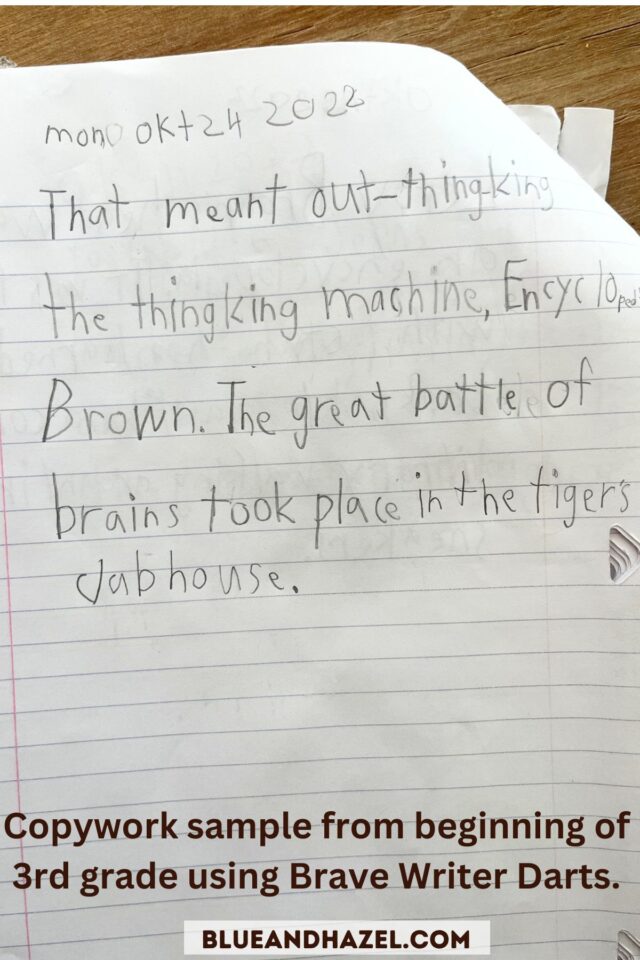 mon okt 24 2022
That meant out-thingking
the thingking machine, Encycloped
Brown. The great battle of
brains took place in the tiger's
clubhouse.
Copywork sample from beginning of
3rd grade using Brave Writer Darts.
BLUEANDHAZEL.COM